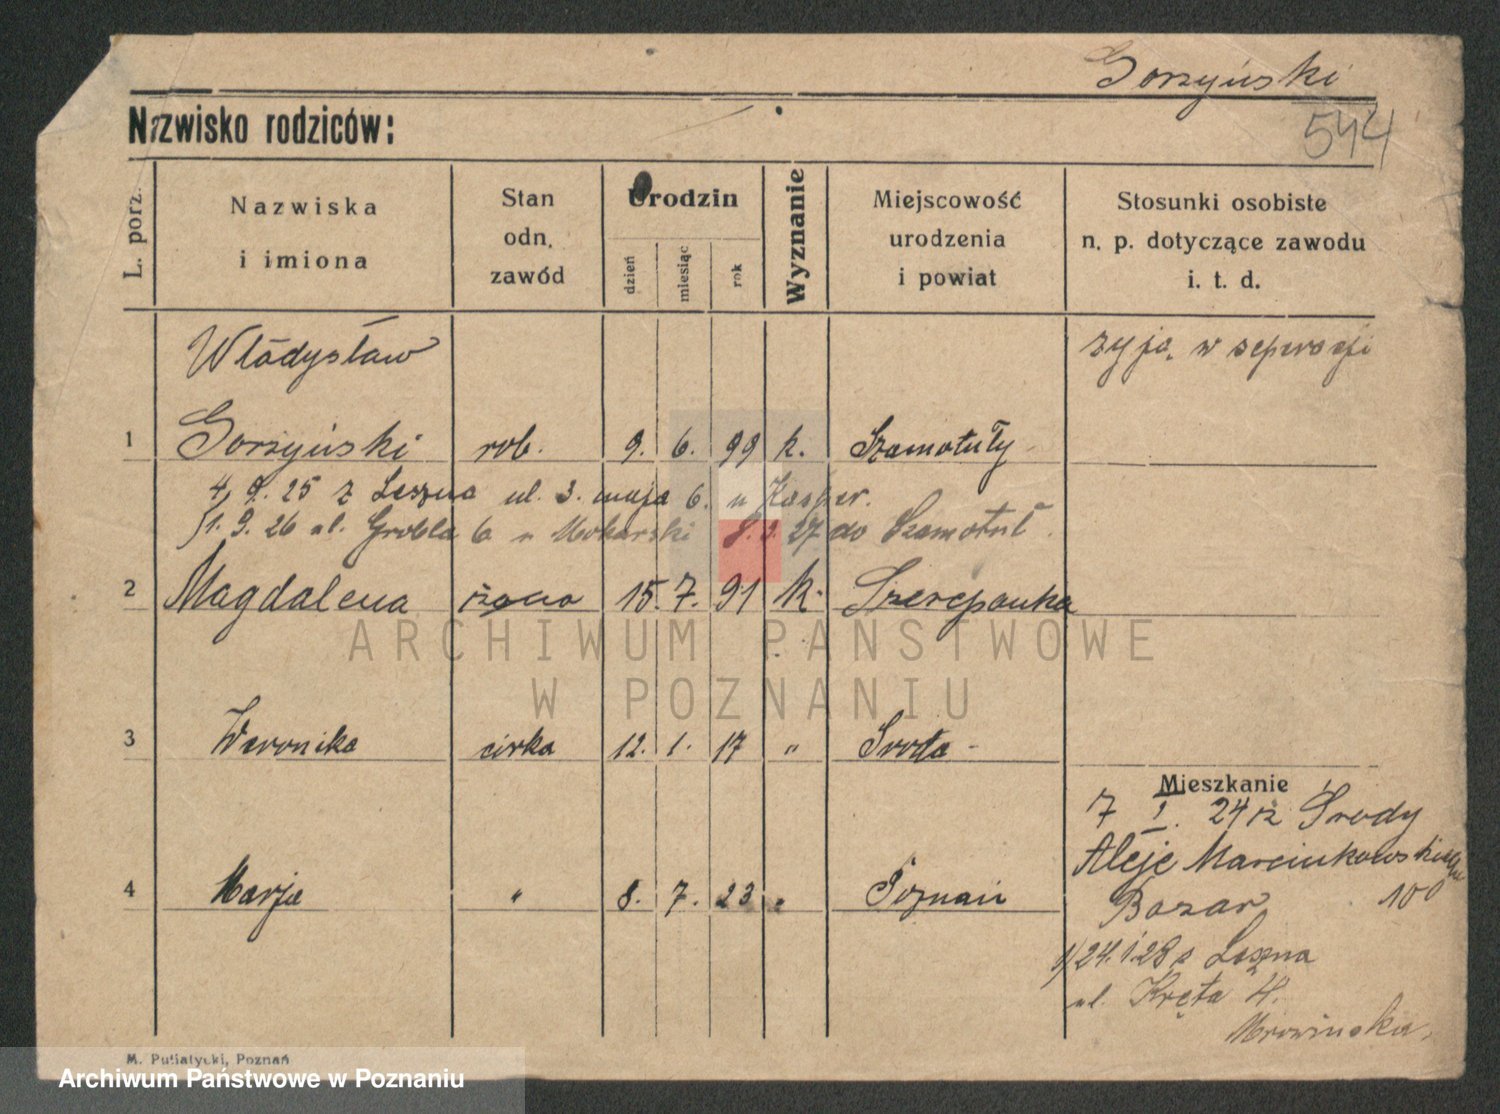 Gorzyński
544
Nazwisko rodziców:
L. porz.
Nazwiska
i imiona
Stan
odn.
zawód
Urodzin
dzień
miesiąc
rok
Wyznanie
Miejscowość
urodzenia
i powiat
Stosunki osobiste
n. p. dotyczące zawodu
i. t. d.
Władysław
żyją w seperacji
1 Gorzyński rob. 9. 6. 99 k. Szamotuły
4. 9. 25 z Leszna ul. 3. maja 6. u Kasper.
1. 9. 26 ul. Grobla 6 u Mokarski 8. 27 do Szamotuł.
2 Magdalena żona 15. 7. 91 k. Szczepanka
ARCHIWUM PAŃSTWOWE
W POZNANIU
3 Weronika córka 12. 1. 17 " Środa -
Mieszkanie
7 I. 24 z Środy
Aleje Marcinkowskiego
4 Marja " 8. 7. 23 " Poznań
Bazar 100
1) 24. 1. 28 z Leszna
ul. Kręta 4.
Mrowińska.
M. Putiatycki, Poznań
Archiwum Państwowe w Poznaniu